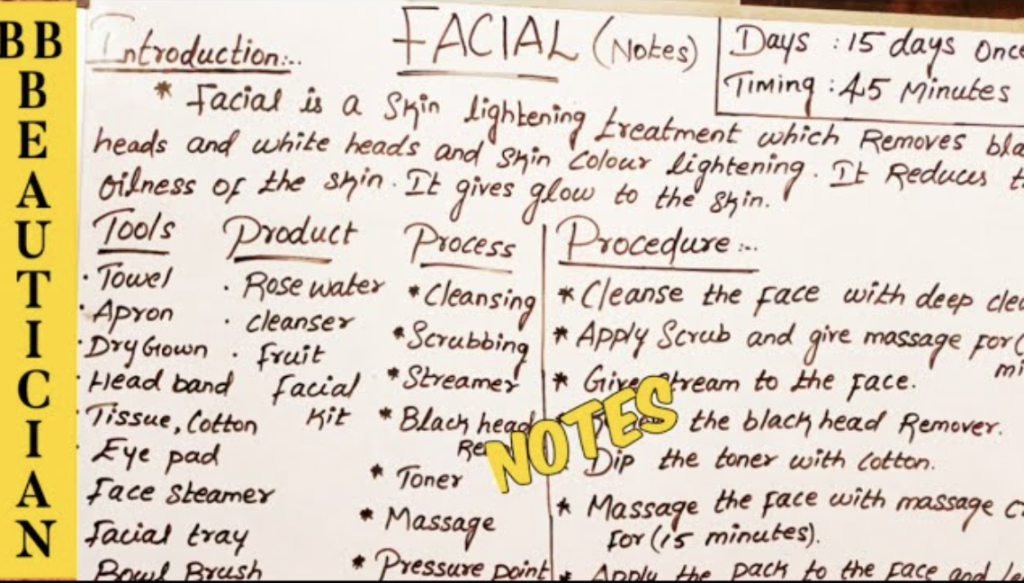 BB
BEAUTICIAN
FACIAL (Notes)
Days : 15 days Once
Timing : 45 Minutes
Introduction:-..
* Facial is a Skin lightening treatment which Removes
heads and white heads and skin Colour lightening. It Reduces
Oilness of the skin. It gives glow to the skin.
Tools
· Towel
· Apron
· Dry Gown
· Head band
· Tissue, Cotton
· Eye pad
Face Steamer
Facial tray
Bowl Brush
Product
· Rose water
· cleanser
· Fruit
Facial
Kit
Process
* Cleansing
* Scrubbing
* Streamer
* Black head
* Toner
* Massage
* Pressure point
Procedure:-..
* Cleanse the Face with deep
* Apply Scrub and give massage For (
* Give Stream to the Face.
the black head Remover.
Dip the toner with Cotton.
* Massage the Face with massage
For (15 minutes).
* Apply the pack to the Face and
NOTES